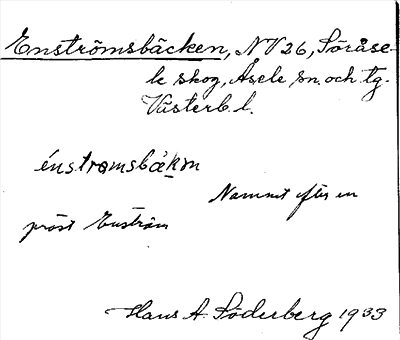 Enströmsbäcken, NV 26, Söråse-
le skog, Åsele sn. och tg.
Västerb. l.
énstromsbäkɒn
Namnet efter en
prost Enström
Hans A. Söderberg 1933